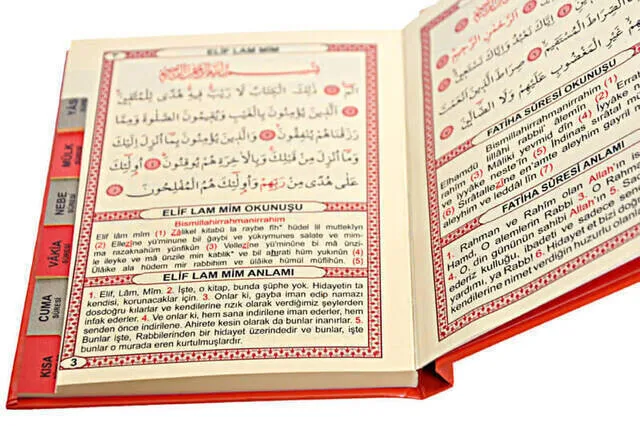 YÂSİN
SÛRESİ
MÜLK
SÛRESİ
NEBE
SÛRESİ
VÂKIA
SÛRESİ
CUMA
SÛRESİ
KISA
ELİF LAM MİM
الم ذَلِكَ الْكِتَابُ لَا رَيْبَ فِيهِ هُدًى لِلْمُتَّقِينَ
الَّذِينَ يُؤْمِنُونَ بِالْغَيْبِ وَيُقِيمُونَ الصَّلَوةَ وَمِمَّا
رَزَقْنَاهُمْ يُنْفِقُونَ وَالَّذِينَ يُؤْمِنُونَ بِمَا أُنْزِلَ إِلَيْكَ
وَمَا أُنْزِلَ مِنْ قَبْلِكَ وَبِالْآخِرَةِ هُمْ يُوقِنُونَ أُولَئِكَ
عَلَى هُدًى مِنْ رَبِّهِمْ وَأُولَئِكَ هُمُ الْمُفْلِحُونَ
ELİF LAM MİM OKUNUŞU
Bismillahirrahmanirrahim
Elif lâm mîm (1) Zâlikel kitabü la raybe fîh* hüdel lil mutteklyn
(2) Ellezîne yü'minune bil ğaybi ve yükıymunes salate ve mim-
ma razaknahüm yünfikûn (3) Vellezîne yü'minûne bi mâ ünzi-
le ileyke ve mâ ünzile min kablik* ve bil ahırati hüm yukınûn (4)
Ülâike ala hüdem mir rabbihim ve ülâike hümül müflihûn. (5)
ELİF LAM MİM ANLAMI
1. Elif, Lâm, Mîm. 2. İşte, o kitap, bunda şüphe yok. Hidayetin ta
kendisi, korunacaklar için. 3. Onlar ki, gayba iman edip namazı
dosdoğru kılarlar ve kendilerine rızık olarak verdiğimiz şeylerden
infak ederler. 4. Ve onlar ki, hem sana indirilene iman ederler, hem
senden önce indirilene. Ahirete kesin olarak da bunlar inanırlar. 5.
Bunlar işte, Rabbilerinden bir hidayet üzerindedir ve bunlar, işte
bunlar o murada eren kurtulmuşlardır.
3
الرَّحْمَنِ الرَّحِيمِ
إِيَّاكَ نَعْبُدُ وَإِيَّاكَ نَسْتَعِينُ
الصِّرَاطَ الْمُسْتَقِيمَ صِرَاطَ الَّذِينَ أَنْعَمْتَ
غَيْرِ الْمَغْضُوبِ عَلَيْهِمْ وَلَا الضَّالِّينَ
FATİHA SÛRESİ OKUNUŞU
Bismillahirrahmanirrahim (1)
Elhamdü lillâhi rabbil' âlemîn (2) Errah
rahîm (3) Mâliki yevmid dîn (4) İyyâke n
ve iyyâke nesteîn (5) İhdinas sırâtal müst
(6) Sırâtallezîne en'amte aleyhim gayril m
aleyhim ve leddâl lîn (7)
FATİHA SÛRESİ ANLAMI
1. Rahman ve Rahîm olan Allah'ın
Hamd, O alemlerin Rabbi 3. O Rahm
4. O, din gününün sahibi Allah'ın 5. Sad
ederiz kulluğu, ibadeti ve sadece sen
yardımı, yâ Rabb! 6. Hidayet et bizi doğru
kendilerine nimet verdiğin